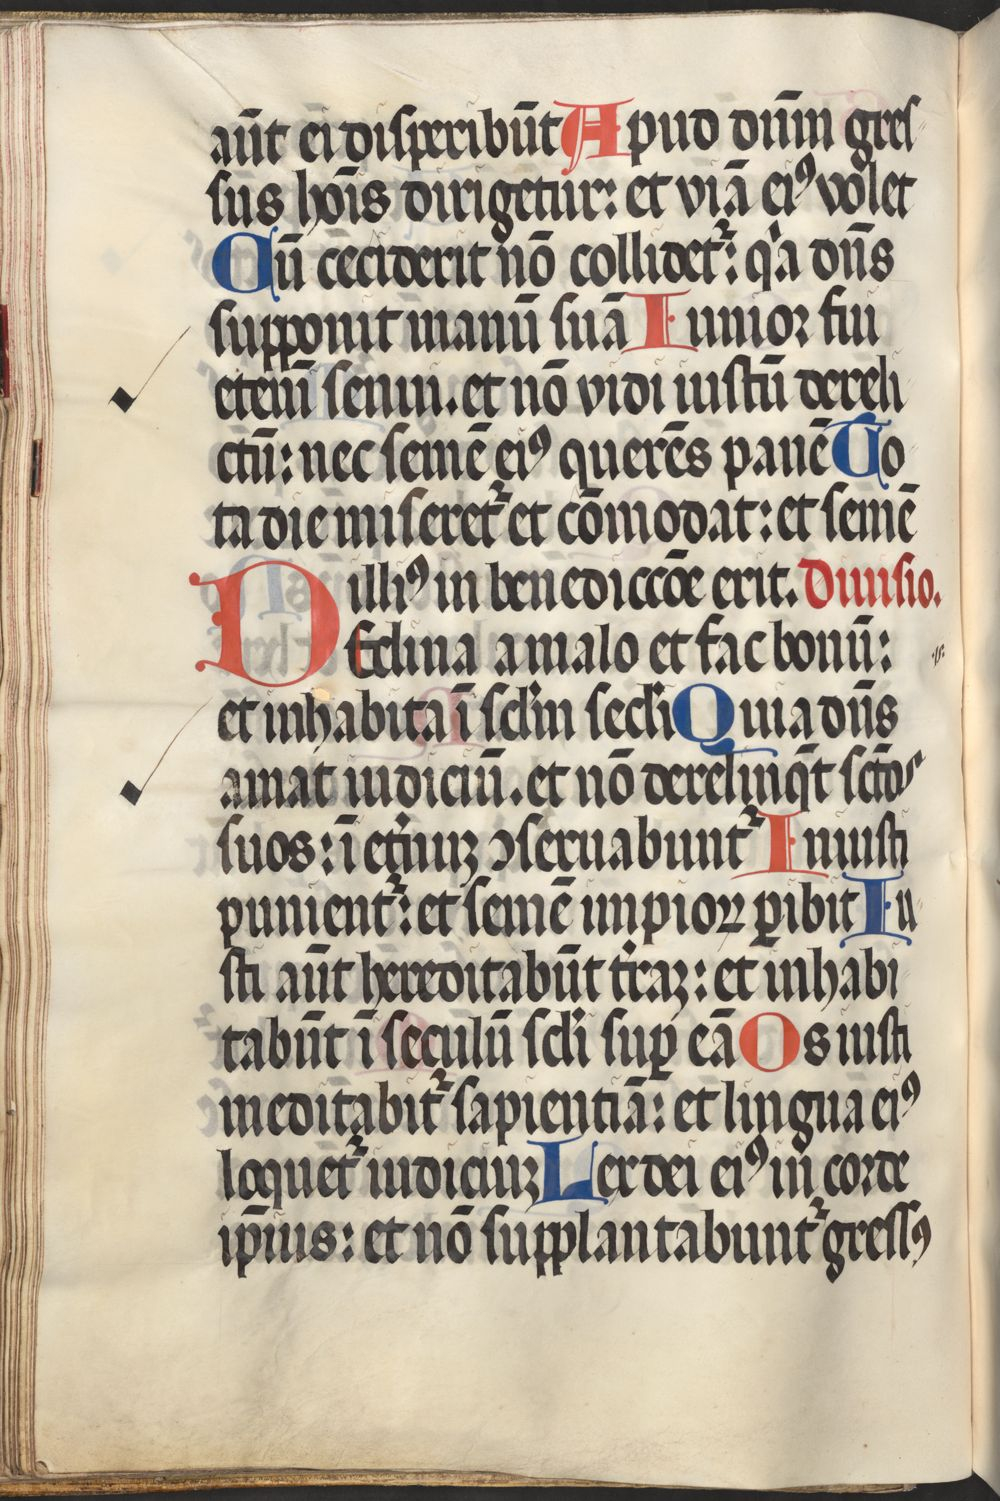 aūt ei disperibūt Apud dn̄m gres
sus hoīs dirigetur: et viā eiꝰ volet
Cū ceciderit nō collidet᷑: qͥa dn̄s
supponit manū suā Iunior fui
etenī senui. et nō vidi iustū dereli
ctū: nec semē eiꝰ querēs panē To
ta die miseret᷑ et cōmodat: et semē
illiꝰ in benediccōe erit. Diuisio.
Declina a malo et fac bonū:
et inhabita ī sclm̄ secli Quia dn̄s
amat iudiciū. et nō derelinq̄t sctōs
suos: ī etͥnuꝫ ꝯseruabunt᷑ Iniusti
punient᷑: et semē impioꝝ ꝑibit Iu
sti aūt hereditabūt tͥraꝫ: et inhabi
tabūt ī seculū scli suꝑ eā Os iusti
meditabit᷑ sapientiā: et lingua eiꝰ
loquet᷑ iudiciuꝫ Lex dei eiꝰ in corde
ip̄ius: et nō supplantabunt᷑ gressꝰ